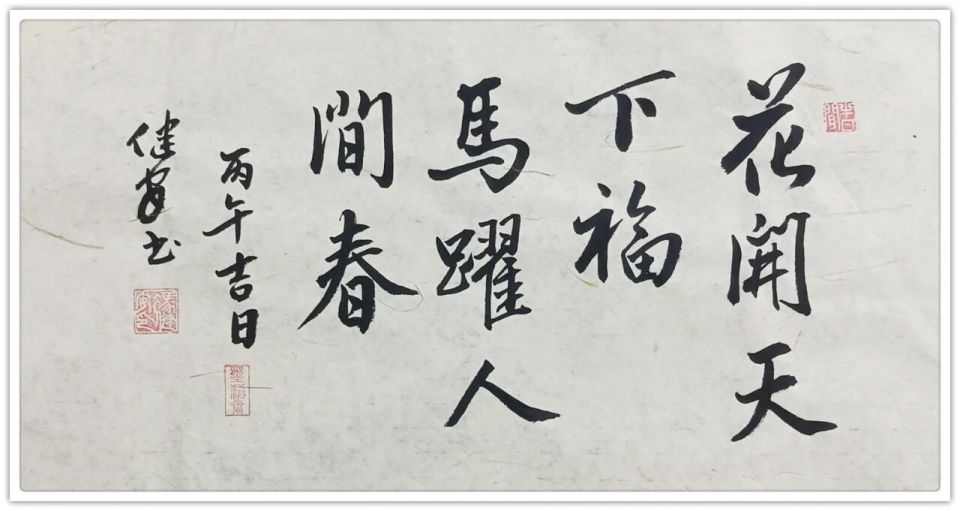 花開天
下福
馬躍人
間春
丙午吉日
健安书